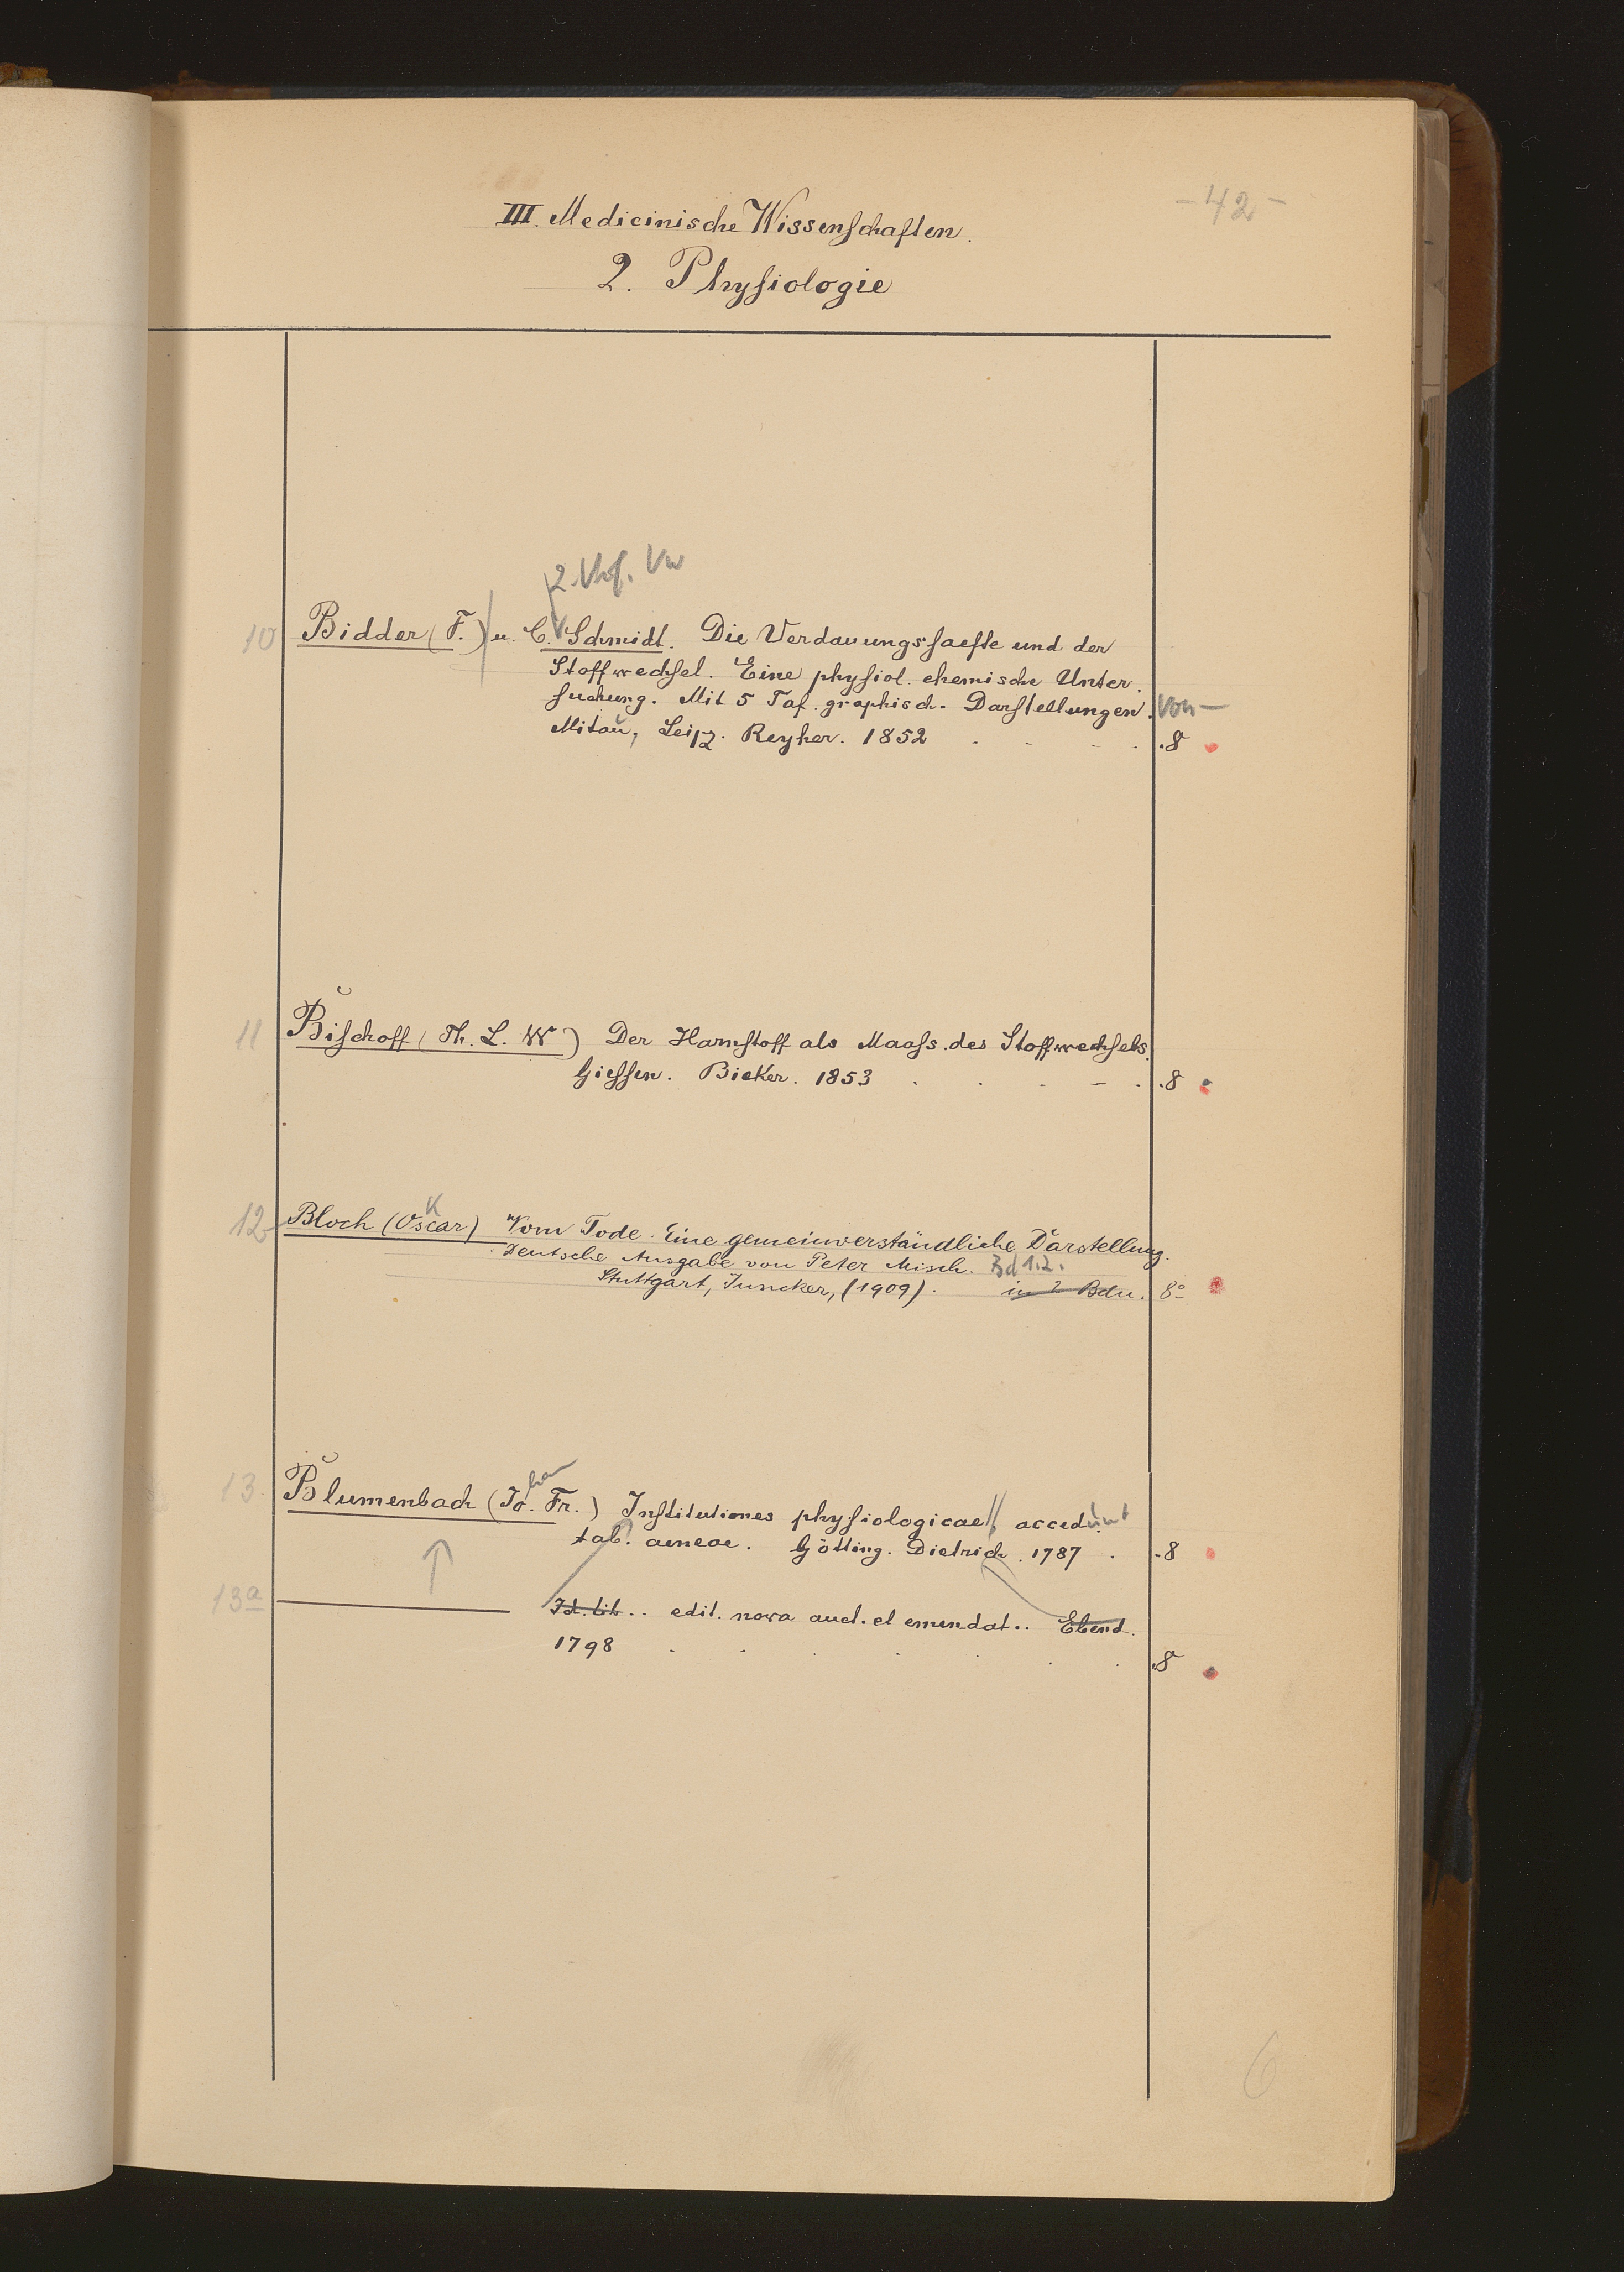 - 42 -
III. Medicinische Wissenschaften.
2. Physiologie
2. Verf. Vw
10 Bidder (F.) u. C. Schmidt. Die Verdauungssaefte und der
Stoffwechsel. Eine physiol. chemische Unter.
suchung. Mit 5 Taf. graphisch. Darstellungen.
Mitau, Leipz. Reyher. 1852 . . . . 8
11 Bischoff (Th. L. W) Der Harnstoff als Maass des Stoffwechsels.
Giessen. Ricker. 1853 . . . - . 8
12 Bloch (Oscar) Vom Tode. Eine gemeinverständliche Darstellung.
k
Deutsche Ausgabe von Peter Misch. Bd 1.2.
Stuttgart, Juncker, (1909). in 2 Bdn. 8°
han
13 Blumenbach (Jo. Fr.) Institutiones physiologicae accedunt
tab. aeneae. Götting. Dietrich. 1787 . 8
13a Id. lib.. edit. nova auct. et emendat.. Ebend.
1798 . . . . . . . 8
6